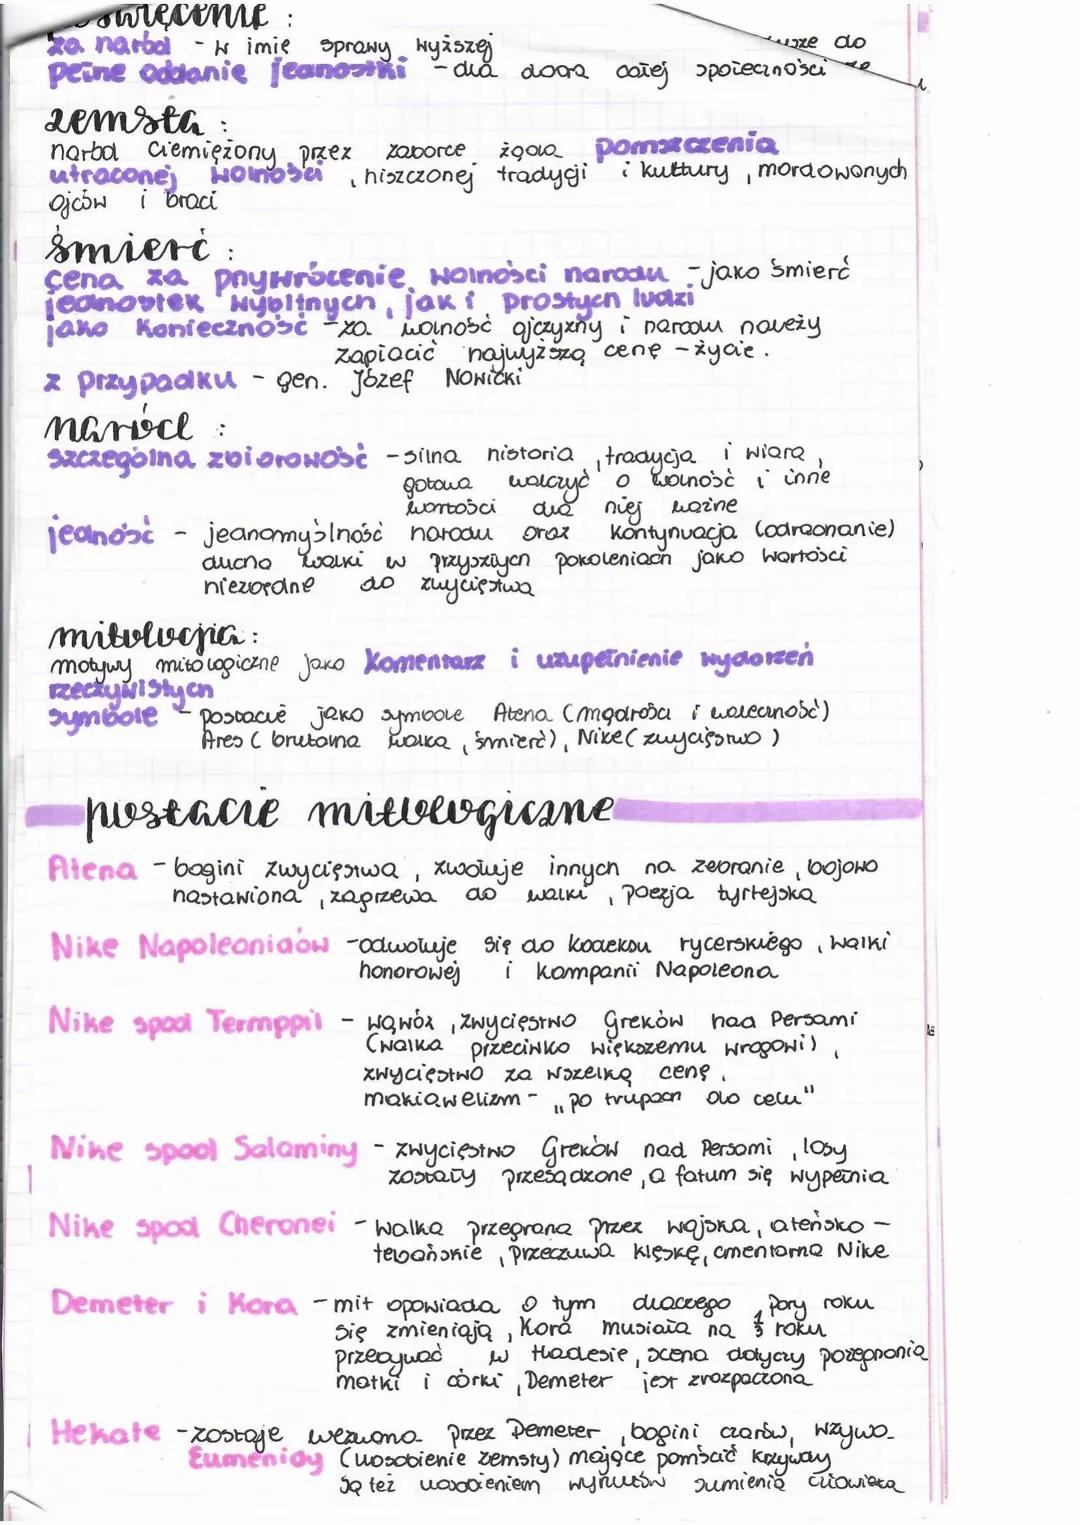 poświęcenie :
za naród - w imię sprawy wyższej
pełne oddanie jednostki - dla dobra całej społeczności
do
zemsta :
naród ciemiężony przez zaborcę żąda pomszczenia
utraconej wolności , niszczonej tradycji i kultury , mordowanych
ojców i braci
śmierć :
cena za przywrócenie wolności narodu - jako śmierć
jednostek wybitnych , jak i prostych ludzi
jako konieczność - za wolność ojczyzny i narodu należy
zapłacić najwyższą cenę - życie .
z przypadku - gen. Józef Nowicki
naród :
szczególna zbiorowość - silna historia , tradycja i wiara ,
gotowa walczyć o wolność i inne
wartości dla niej ważne
jedność - jednomyślność narodu oraz kontynuacja (odradnanie)
ducha walki w przyszłych pokoleniach jako wartości
niezbędne do zwycięstwa
mitologia :
motywy mitologiczne jako komentarz i uzupełnienie wydarzeń
rzeczywistych
symbole - postacie jako symbole Atena (mądrość i waleczność)
Ares ( brutalna walka , śmierć) , Nike ( zwycięstwo )
postacie mitologiczne
Atena - bogini zwycięstwa , zwołuje innych na zebranie , bojowo
nastawiona , zagrzewa do walki , poezja tyrtejska
Nike Napoleonidów - odwołuje się do kodeksu rycerskiego , walki
honorowej i kampanii Napoleona
Nike spod Termppil - wąwóz , zwycięstwo Greków nad Persami
(walka przeciwko większemu wrogowi) ,
zwycięstwo za wszelką cenę ,
makiawelizm - „ po trupach do celu"
Nike spod Salaminy - zwycięstwo Greków nad Persami , losy
zostały przesądzone , a fatum się wypełnia
Nike spod Cheronei - walka przegrana przez wojska , ateńsko -
tebańskie , przeczuwa klęskę , cmentarna Nike
Demeter i Kora - mit opowiada o tym dlaczego pory roku
się zmieniają , Kora musiała na 1/3 roku
przebywać w Hadesie , scena dotyczy pożegnania
matki i córki , Demeter jest zrozpaczona
Hekate - zostaje wezwana przez Demeter , bogini czarów , wzywa
Eumenidy (uosobienie zemsty) mające pomścić krzywdy
są też uosobieniem wyrzutów sumienia człowieka